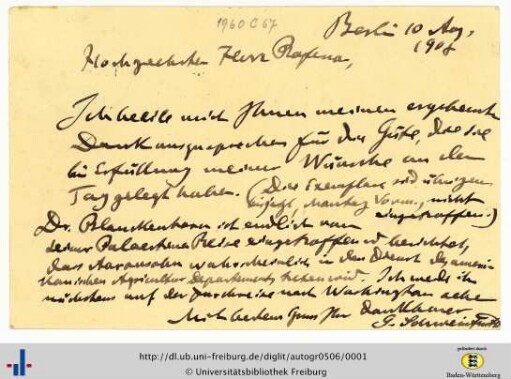 1960 C 67
Berlin 10 Aug.
1908
Hochgeehrter Herr Professor,
Ich beeile mich Ihnen meinen ergebensten
Dank auszusprechen für die Güte, die Sie
bei Erfüllung meiner Wünsche an den
Tag gelegt haben. (Die Exemplare sind übrigens
Montag Vorm., nicht
eingetroffen.)
Dr. Blanckenhorn ist endlich von
seiner Palaestina Reise eingetroffen u berichtet,
dass Aaronsohn wahrscheinlich in den Dienst des ameri-
kanischen Agricultur Departements treten wird. Ich werde ihn
nächstens auf der Durchreise nach Washington sehen
Mit bestem Gruss Ihr dankbarer
G. Schweinfurth
http://dl.ub.uni-freiburg.de/diglit/autogr0506/0001
© Universitätsbibliothek Freiburg
gefördert durch
Baden-Württemberg